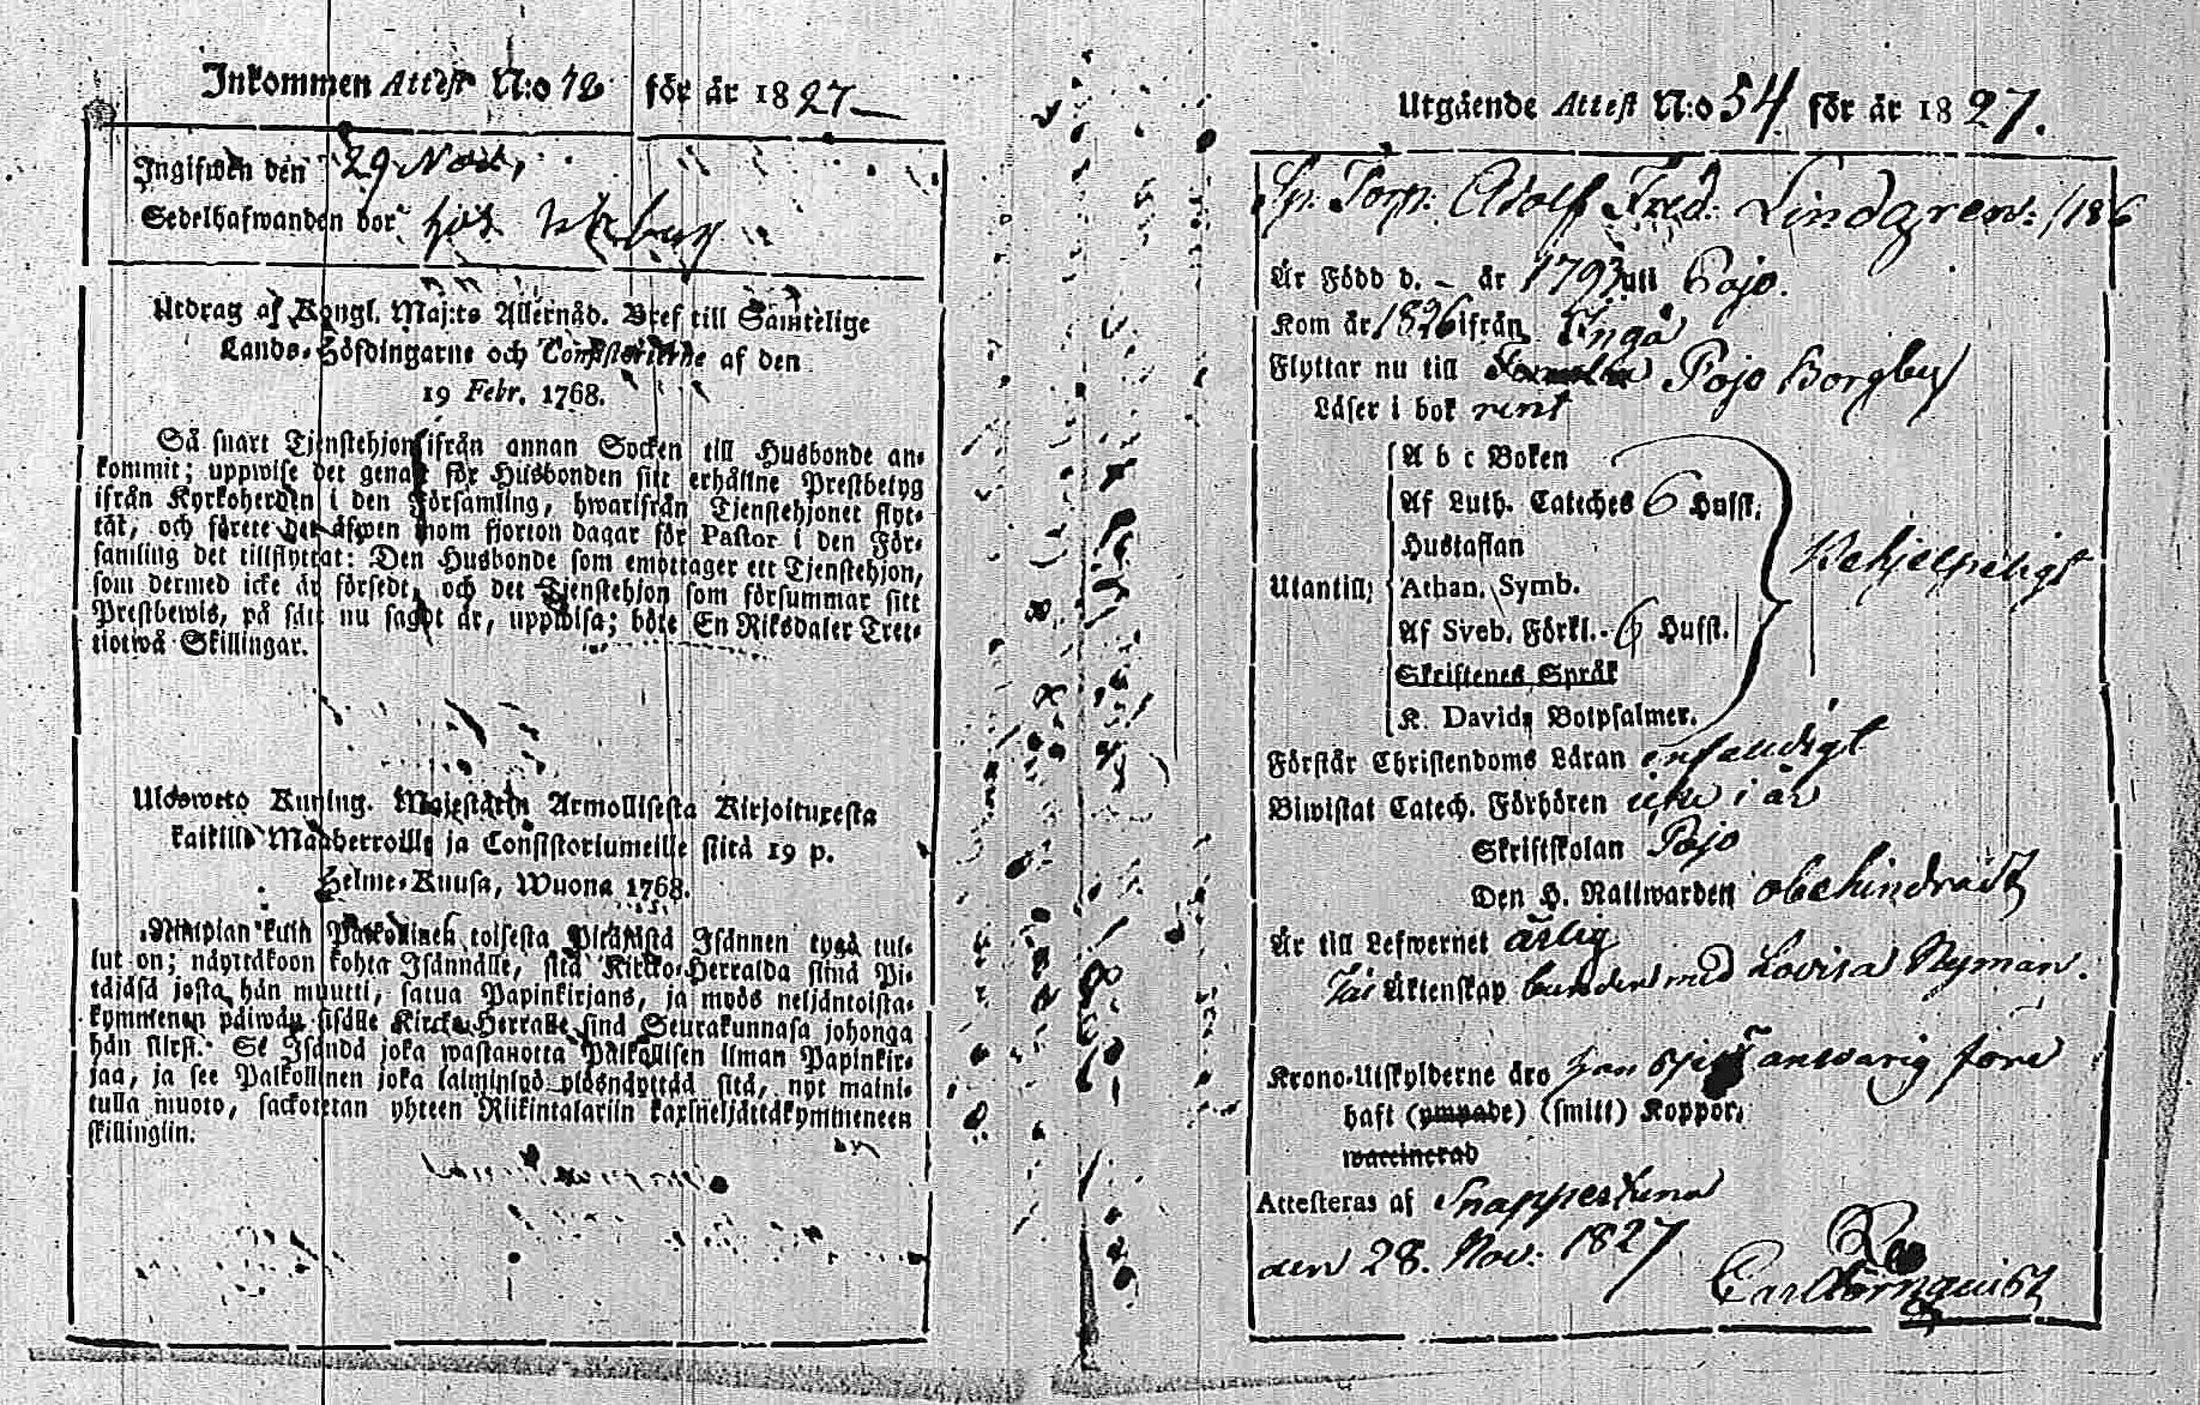 Inkommen Attest N:o 72 för år 1827
Ingifwen den 29 Nov.
Sedelhafwanden bor
Utdrag af Kongl. Maj:ts Allernåd. Bref till Samtelige
Lands-Höfdingarne och Consistorierne af den
19 Febr. 1768.
Så snart Tjenstehjon ifrån annan Socken till Husbonde an-
kommit; uppwise det genast för Husbonden sitt erhållne Prestbetyg
ifrån Kyrkoherden i den Församling, hwarifrån Tjenstehjonet flyt-
tat, och förete det äfwen inom fjorton dagar för Pastor i den För-
samling det tillflyttat: Den Husbonde som emottager ett Tjenstehjon,
som dermed icke är försedt, och det Tjenstehjon som försummar sitt
Prestbewis, på sätt nu sagdt är, uppwisa; böte En Riksdaler Tret-
tiotwå Skillingar.
Uloswето Kuning. Majestätin Armollisesta Kirjoituxesta
kaikille Maaherroille ja Consistoriumeille siitä 19 p.
Helme-Kuusa, Wuona 1768.
Niinpian kuin Palkollinen toisesta Pitäjästä Isännen tygö tul-
lut on; näyttäkoon kohta Isännälle, sitä Kircko-Herralda siinä Pi-
täjäsä josta hän muutti, saatua Papinkirjans, ja myös neljäntoista-
kymmenen päiwän sisälle Kircko-Herralle siinä Seurakunnasa johonga
hän siirsi. Se Isändä joka wastanotta Palkollisen ilman Papinkir-
jaa, ja see Palkollinen joka laiminlyö ylösnäyttää sitä, nyt maini-
tulla muoto, sackotetan yhteen Riikintalariin kaxineljättäkymmeneen
skillingiin.
Utgående Attest N:o 54 för år 1827.
Sp. Torp. Adolf Fred. Lindgren
Är Född d. - år 1793 uti Pojo.
Kom år 1826 ifrån Ingå
Flyttar nu till Pojo Borgby
Läser i bok rent
Utantill;
A b c Boken
Af Luth. Cateches 6 Hufst.
Hustaflan
Athan. Symb.
Af Sveb. Förkl. 6 Hufst.
Skriftenes Språk
K. Davids Botpsalmer.
Behjelpeligt
Förstår Christendoms Läran enfaldigt
Biwistat Catech. Förhören icke i år
Skriftskolan Pojo
Den H. Nattwarden obehindradt
Är till Lefwernet ärlig
Till Äktenskap bunden med Lovisa Nyman.
Krono-Utskylderne äro han sjelf answarig före
haft (ympade) (smitt) Koppor.
waccinerad
Attesteras af Snappertuna
den 28. Nov: 1827
Carl Törnquist